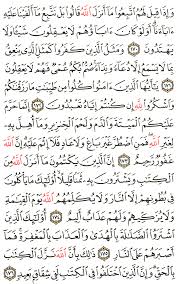 وَإِذَا قِيلَ لَهُمُ ٱتَّبِعُوا۟ مَآ أَنزَلَ ٱللَّهُ قَالُوا۟ بَلْ نَتَّبِعُ مَآ أَلْفَيْنَا عَلَيْهِ
ءَابَآءَنَآ أَوَلَوْ كَانَ ءَابَآؤُهُمْ لَا يَعْقِلُونَ شَيْـًٔا وَلَا
يَهْتَدُونَ ١٧٠ وَمَثَلُ ٱلَّذِينَ كَفَرُوا۟ كَمَثَلِ ٱلَّذِى يَنْعِقُ
بِمَا لَا يَسْمَعُ إِلَّا دُعَآءً وَنِدَآءً صُمٌّۢ بُكْمٌ عُمْىٌ فَهُمْ لَا يَعْقِلُونَ
١٧١ يَـٰٓأَيُّهَا ٱلَّذِينَ ءَامَنُوا۟ كُلُوا۟ مِن طَيِّبَـٰتِ مَا رَزَقْنَـٰكُمْ
وَٱشْكُرُوا۟ لِلَّهِ إِن كُنتُمْ إِيَّاهُ تَعْبُدُونَ ١٧٢ إِنَّمَا حَرَّمَ
عَلَيْكُمُ ٱلْمَيْتَةَ وَٱلدَّمَ وَلَحْمَ ٱلْخِنزِيرِ وَمَآ أُهِلَّ بِهِۦ
لِغَيْرِ ٱللَّهِ فَمَنِ ٱضْطُرَّ غَيْرَ بَاغٍ وَلَا عَادٍ فَلَآ إِثْمَ عَلَيْهِ إِنَّ ٱللَّهَ
غَفُورٌ رَّحِيمٌ ١٧٣ إِنَّ ٱلَّذِينَ يَكْتُمُونَ مَآ أَنزَلَ ٱللَّهُ مِنَ
ٱلْكِتَـٰبِ وَيَشْتَرُونَ بِهِۦ ثَمَنًا قَلِيلًا أُو۟لَـٰٓئِكَ مَا يَأْكُلُونَ
فِى بُطُونِهِمْ إِلَّا ٱلنَّارَ وَلَا يُكَلِّمُهُمُ ٱللَّهُ يَوْمَ ٱلْقِيَـٰمَةِ
وَلَا يُزَكِّيهِمْ وَلَهُمْ عَذَابٌ أَلِيمٌ ١٧٤ أُو۟لَـٰٓئِكَ ٱلَّذِينَ
ٱشْتَرَوُا۟ ٱلضَّلَـٰلَةَ بِٱلْهُدَىٰ وَٱلْعَذَابَ بِٱلْمَغْفِرَةِ فَمَآ
أَصْبَرَهُمْ عَلَى ٱلنَّارِ ١٧٥ ذَٰلِكَ بِأَنَّ ٱللَّهَ نَزَّلَ ٱلْكِتَـٰبَ
بِٱلْحَقِّ وَإِنَّ ٱلَّذِينَ ٱخْتَلَفُوا۟ فِى ٱلْكِتَـٰبِ لَفِى شِقَاقٍۭ بَعِيدٍ ١٧٦